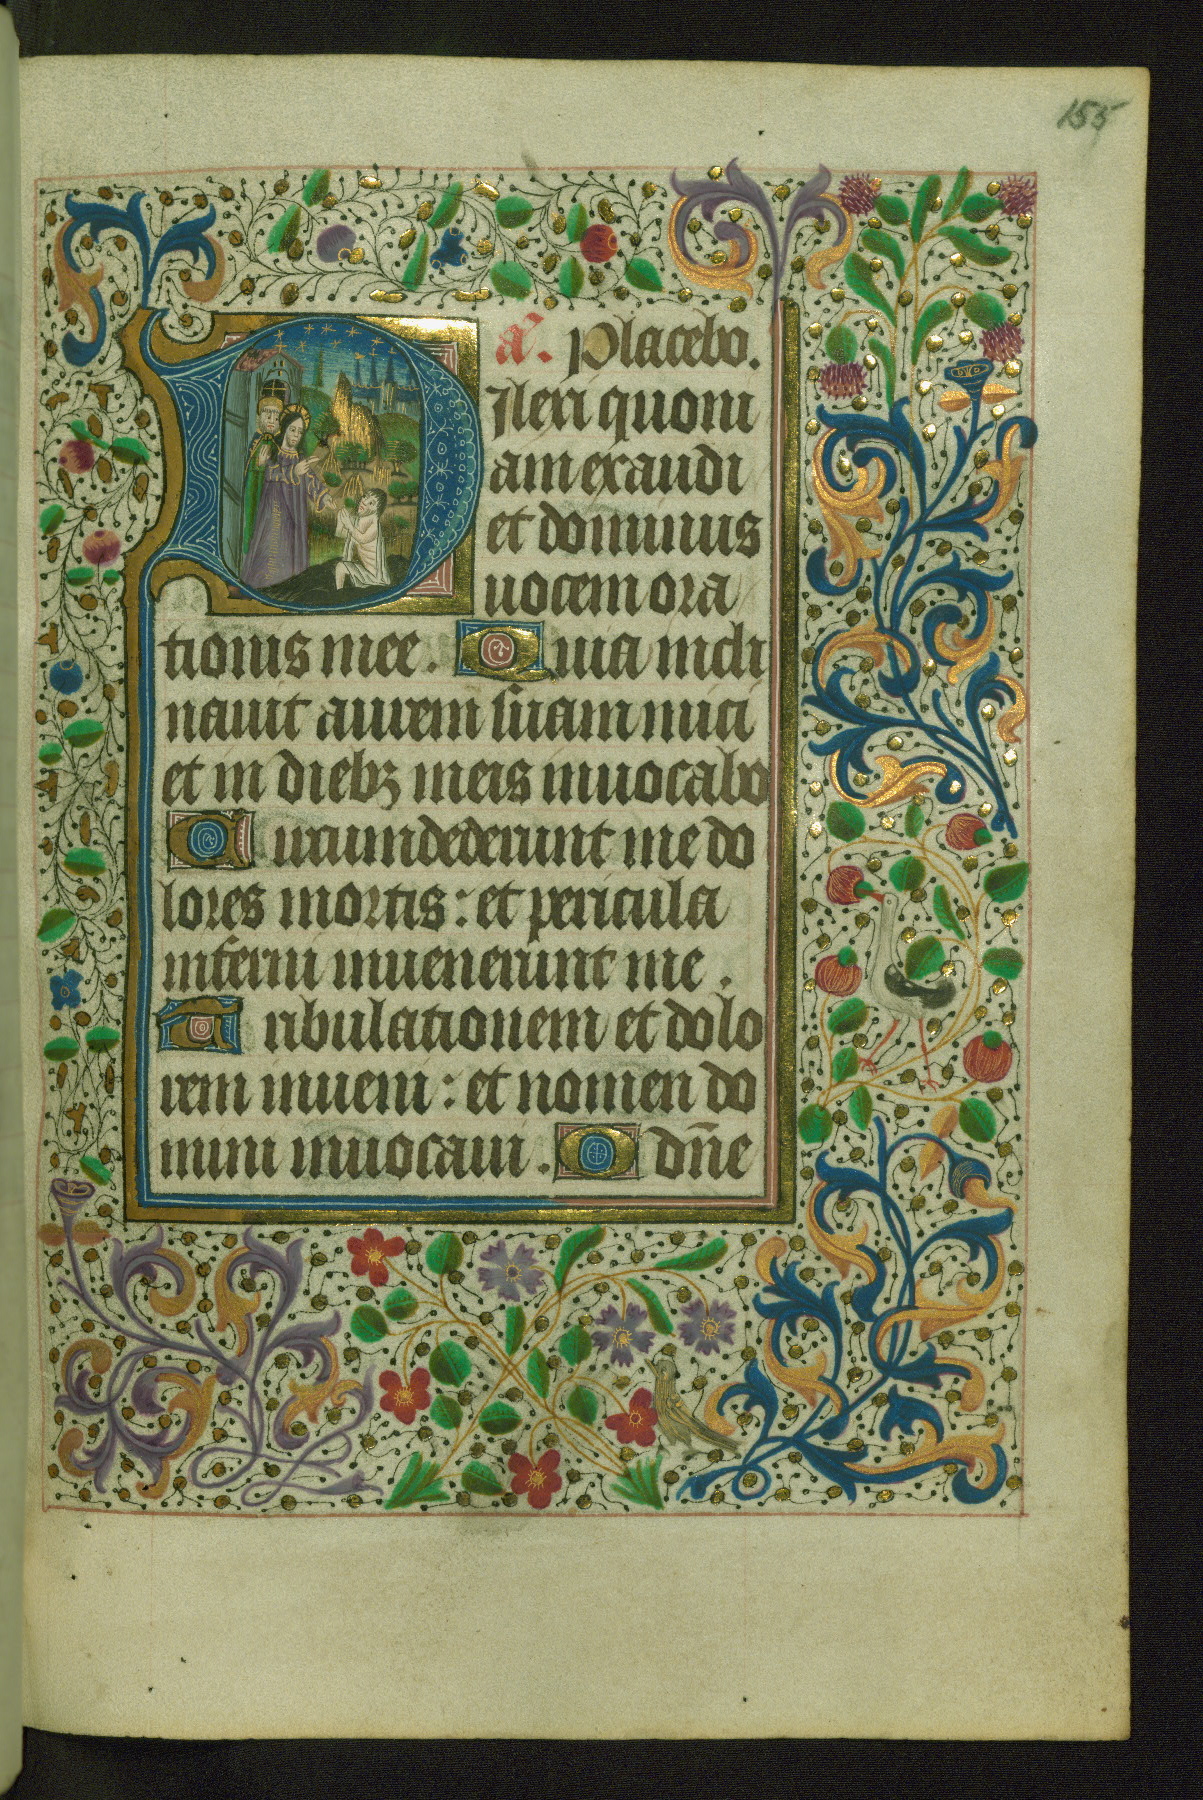 155
a'. Placebo.
Dilexi quoni
am exaudi
et dominus
uocem ora
tionis mee. Quia incli
nauit aurem suam mici
et in dieb3 meis inuocabo
Circumdederunt me do
lores mortis: et pericula
inferni inuenerunt me.
Tribulationem et dolo
rem inueni: et nomen do
mini inuocaui. O dn̄e